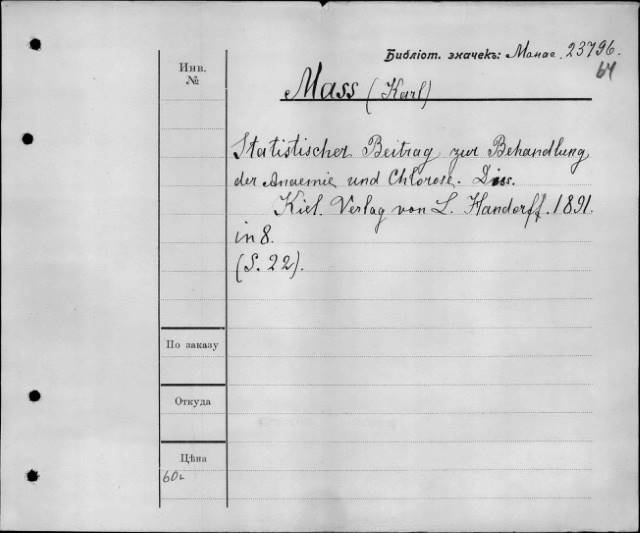 Библіот. значекъ: Манас. 23796.
64
Инв.
№
Mass (Karl)
Statistischer Beitrag zur Behandlung
der Anaemie und Chlorose. Diss.
Kiel. Verlag von L. Handorff. 1891.
in 8.
(S. 22).
По заказу
Откуда
Цѣна
60